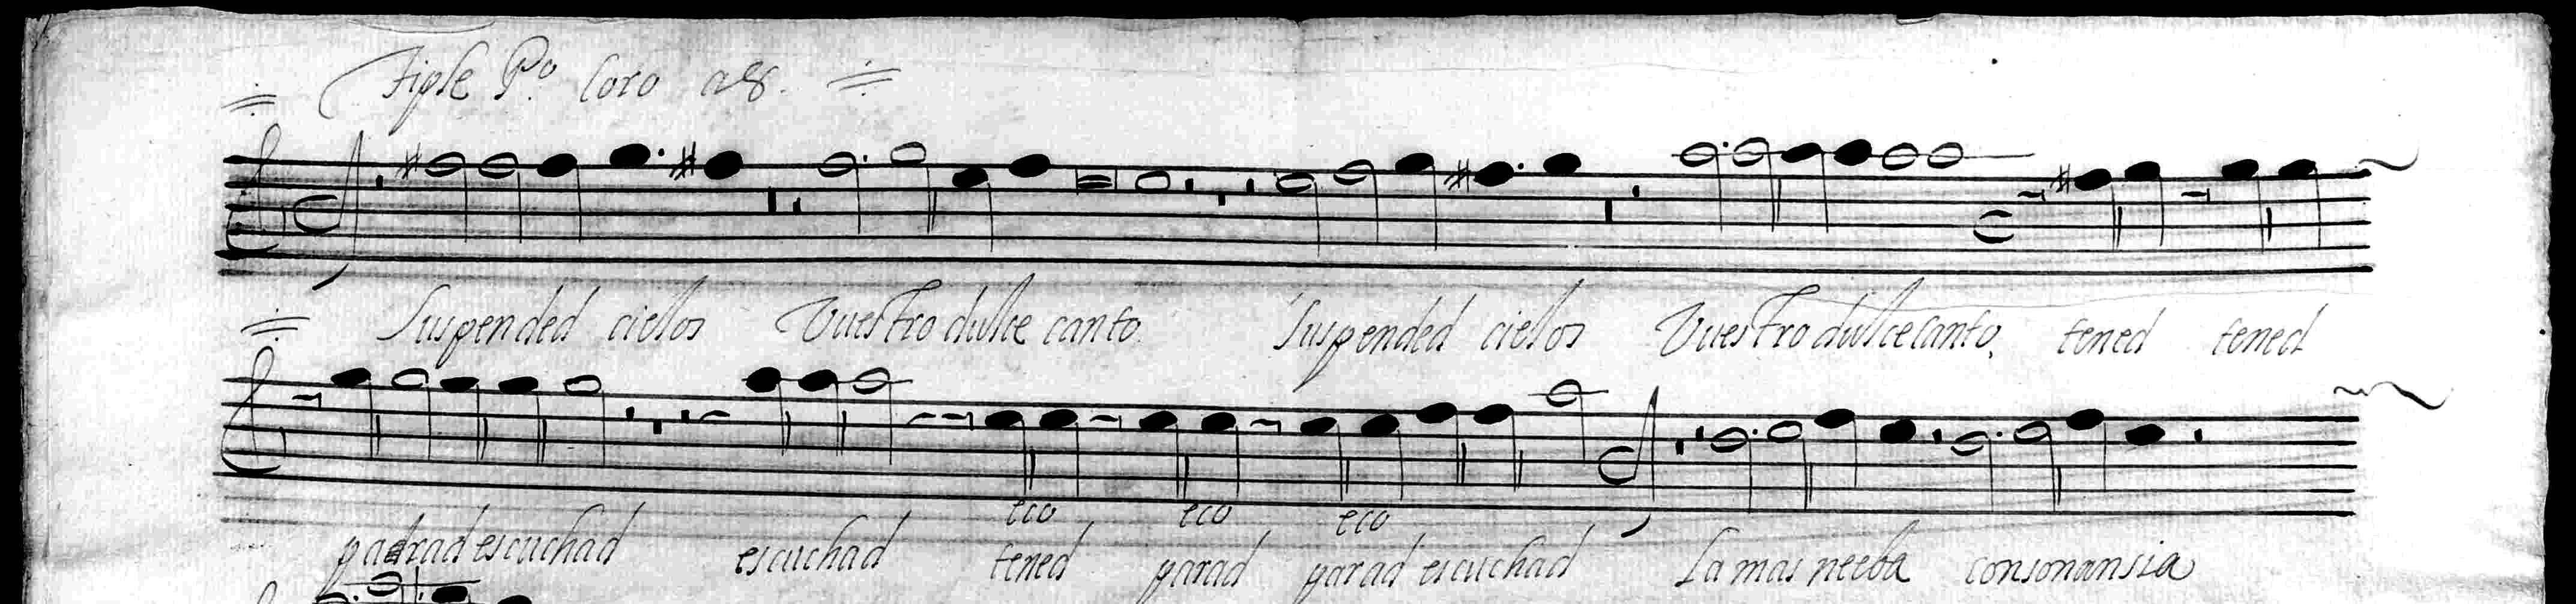 Tiple Pº Coro a 8.
Suspended ciellos Vuestro dulce canto. Suspended ciellos Vuestro dulce canto, tened tened
eco eco eco
parad escuchad escuchad tened parad parad escuchad La mas nueba consonansia